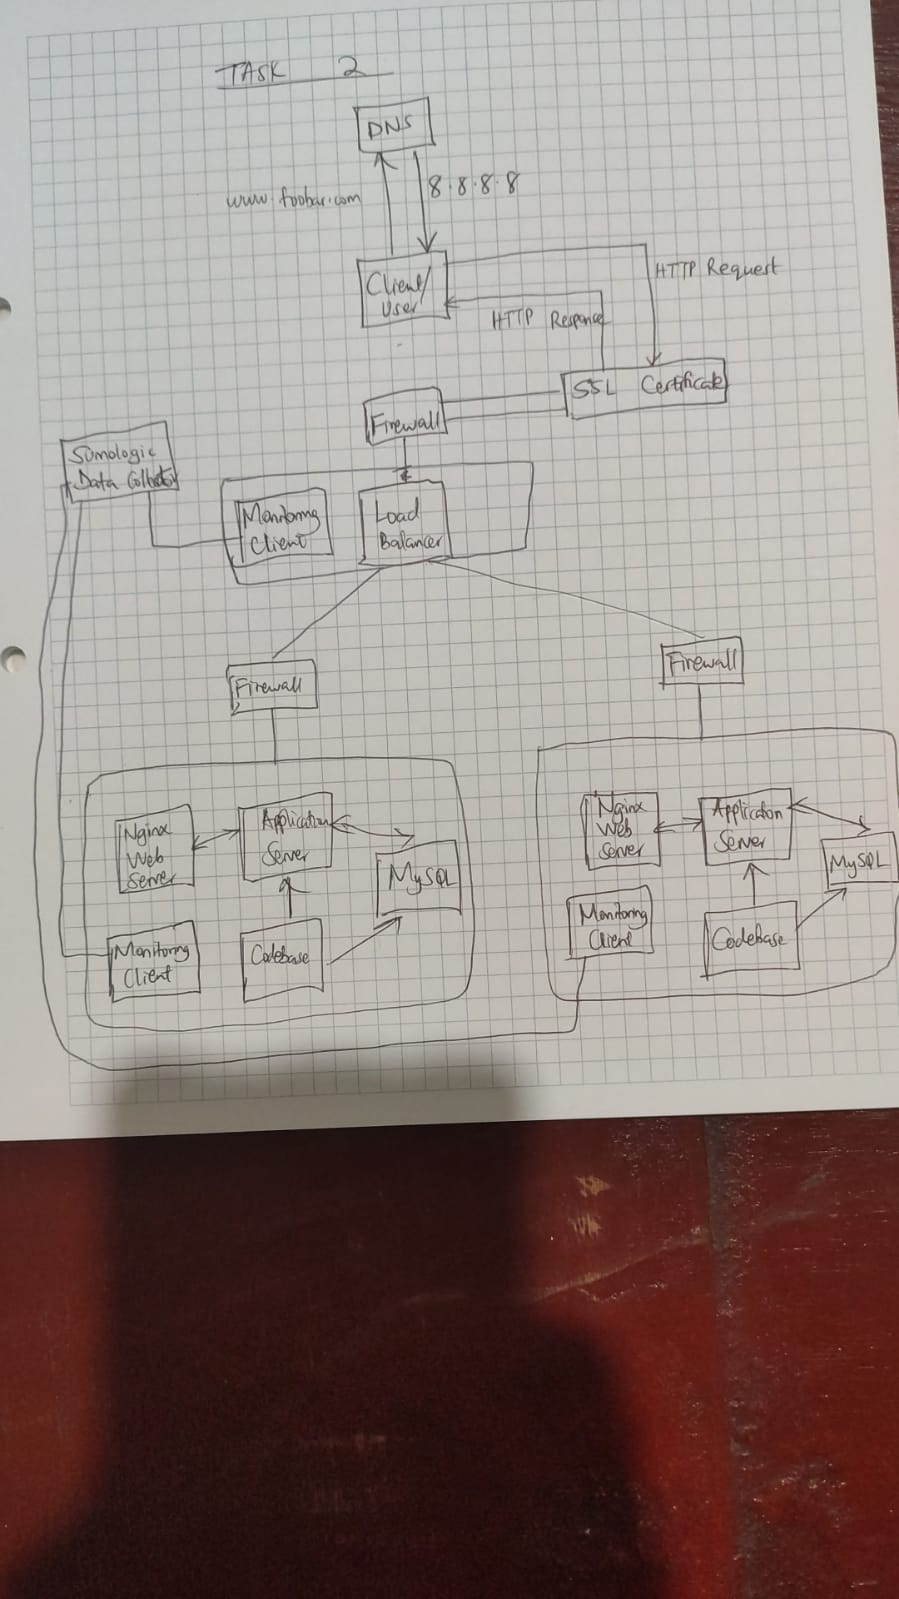 TASK 2
DNS
www.foobar.com
8.8.8.8
Client/
User
HTTP Request
HTTP Response
SSL Certificate
Firewall
Sumologic
Data Collector
Monitoring
Client
Load
Balancer
Firewall
Firewall
Nginx
Web
Server
Application
Server
MySQL
Monitoring
Client
Codebase
Nginx
Web
Server
Application
Server
MySQL
Monitoring
Client
Codebase